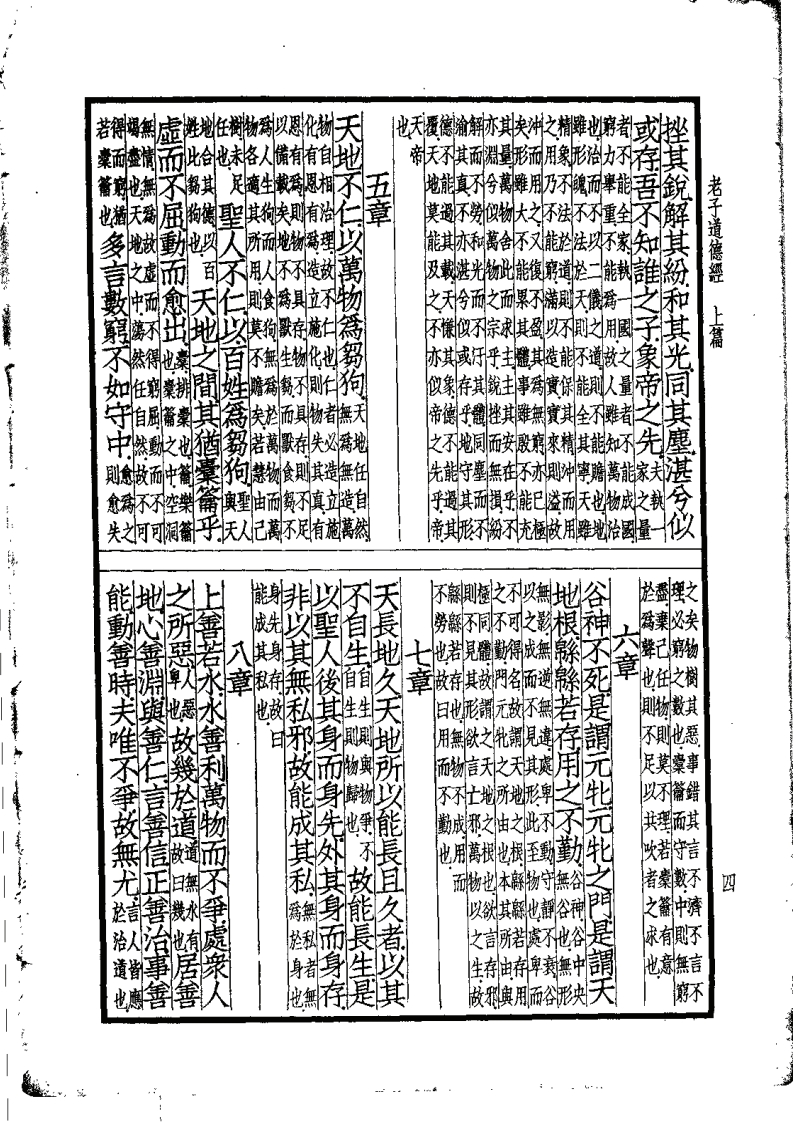 老子道德經 上篇
挫其銳解其紛和其光同其塵湛兮似
或存吾不知誰之子象帝之先 夫執一
家之量
者不能全家執一國之量者不能成國
窮力舉重不能爲用故人雖知萬物治
也治而不以二儀之道則不能贍也地
雖形魄不法於天則不能全其寧天雖
精象不法於道則不能保其精沖而用
之用乃不能窮滿以造實實來則溢故
沖而用之又復不盈其爲無窮亦已極
矣形雖大不能累其體事雖殷不能充
其量萬物舍此而求主主其安在乎不
亦淵兮似萬物之宗乎銳挫而無損紛
解而不勞和光而不汙其體同塵而不
渝其真不亦湛兮似或存乎地守其形
德不能過其載天慊其象德不能過其
覆天地莫能及之不亦似帝之先乎帝
天帝
也
五章
天地不仁以萬物爲芻狗 天地任自然
無爲無造萬
物自相治理故不仁也仁者必造立施
化有恩有爲造立施化則物失其真有
恩有爲則物不具存物不具存則不足
以備載矣地不爲獸生芻而獸食芻不
爲人生狗而人食狗無爲於萬物而萬
物各適其所用則莫不贍矣若慧由己
樹未足
任也 聖人不仁以百姓爲芻狗 聖人
與天
地合其德以百
姓比芻狗也 天地之間其猶橐籥乎
虛而不屈動而愈出 橐排橐也籥樂籥
也橐籥之中空洞
無情無爲故虛而不得窮屈動而不可
竭盡也天地之中蕩然任自然故不可
得而窮猶
若橐籥也 多言數窮不如守中 愈爲之
則愈失
之矣物樹其惡事錯其言不濟不言不
理必窮之數也橐籥而守數中則無窮
盡棄己任物則莫不理若橐籥有意
於爲聲也則不足以共吹者之求也
六章
谷神不死是謂元牝元牝之門是謂天
地根緜緜若存用之不勤 谷神谷中央
無谷也無形
無影無逆無違處卑不動守靜不衰谷
以之成而不見其形此至物也處卑而
不可得名故謂天地之根緜緜若存用
之不勤門元牝之所由也本其所由與
極同體故謂之天地之根也欲言存邪
則不見其形欲言亡邪萬物以之生故
緜緜若存也無物不成用而
不勞也故曰用而不勤也
七章
天長地久天地所以能長且久者以其
不自生 自生則與物爭不
自生則物歸也 故能長生是
以聖人後其身而身先外其身而身存
非以其無私邪故能成其私 無私者無
爲於身也
身先身存故曰
能成其私也
八章
上善若水水善利萬物而不爭處衆人
之所惡 人惡
卑也 故幾於道 道無水有
故曰幾也 居善
地心善淵與善仁言善信正善治事善
能動善時夫唯不爭故無尤 言人皆應
於治道也
四